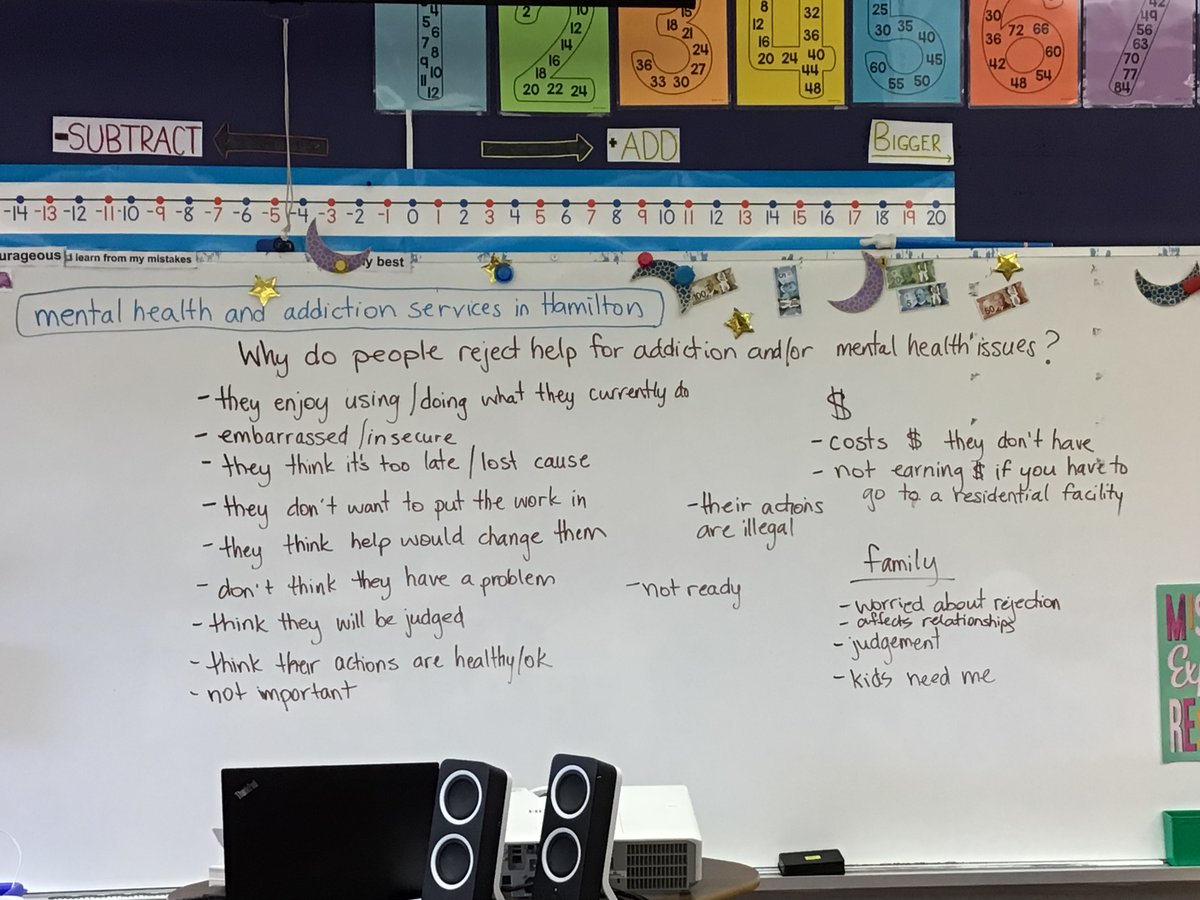 4
5 6
7 8
9 10
11 12
2 10
12
14
16
18
20 22 24
15
18 21
24
36 27
33 30
8 32
12
16 36
20 24 40
44
48
25
30 35 40
45
60 50
55
30
36 72 66
60
42 54
48
42
49 56
63
70
77
84
-SUBTRACT
+ADD
BIGGER
-14 -13 -12 -11 -10 -9 -8 -7 -6 -5 -4 -3 -2 -1 0 1 2 3 4 5 6 7 8 9 10 11 12 13 14 15 16 17 18 19 20
urageous
I learn from my mistakes
y best
100
5
20
5
50
mental health and addiction services in Hamilton
Why do people reject help for addiction and/or mental health issues?
- they enjoy using/doing what they currently do
- embarrassed/insecure
- they think it's too late/lost cause
- they don't want to put the work in
- they think help would change them
- don't think they have a problem
- think they will be judged
- think their actions are healthy/ok
- not important
- their actions
are illegal
- not ready
$
- costs $ they don't have
- not earning $ if you have to
go to a residential facility
family
- worried about rejection
- affects relationships
- judgement
- kids need me
MIS
Ex
RE
ThinkPad